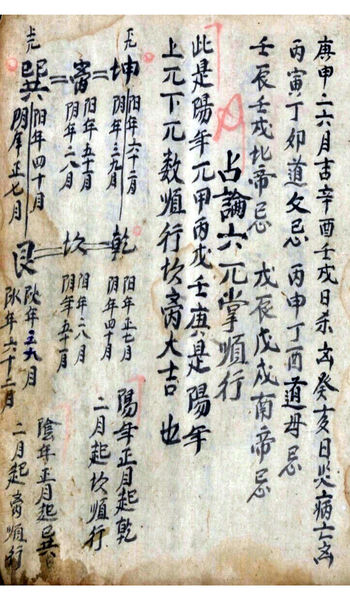 庚申二六月古辛酉壬戌日杀凶癸亥日災病亡凶
丙寅丁卯道父忌 丙申丁酉道母忌
壬辰壬戌北帝忌 戊辰戊戌南帝忌
占論六元掌順行
此是陽年元甲丙戊壬庚是陽年
上元下元数順行坎离大吉也
坤 阳年六十二月 阴年三九月
阳年五十一月 阴年二八月
上元 巽 阳年四十月 阴年正七月
乾 阳年正七月 阴年四十月
坎 阳年二八月 阴年五十一月
艮 阳年三九月 阴年六十二月
陽年正月起乾
二月起坎順行
陰年正月起巽
二月起离順行